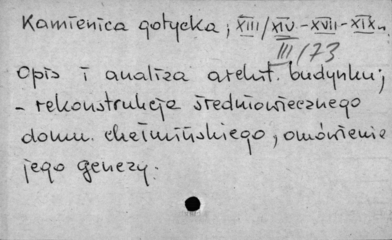 Kamienica gotycka; XIII/XIV-XVII-XIX w.
III/73
Opis i analiza archit. budynku;
- rekonstrukcja średniowiecznego
domu chełmińskiego, omówienie
jego genezy.